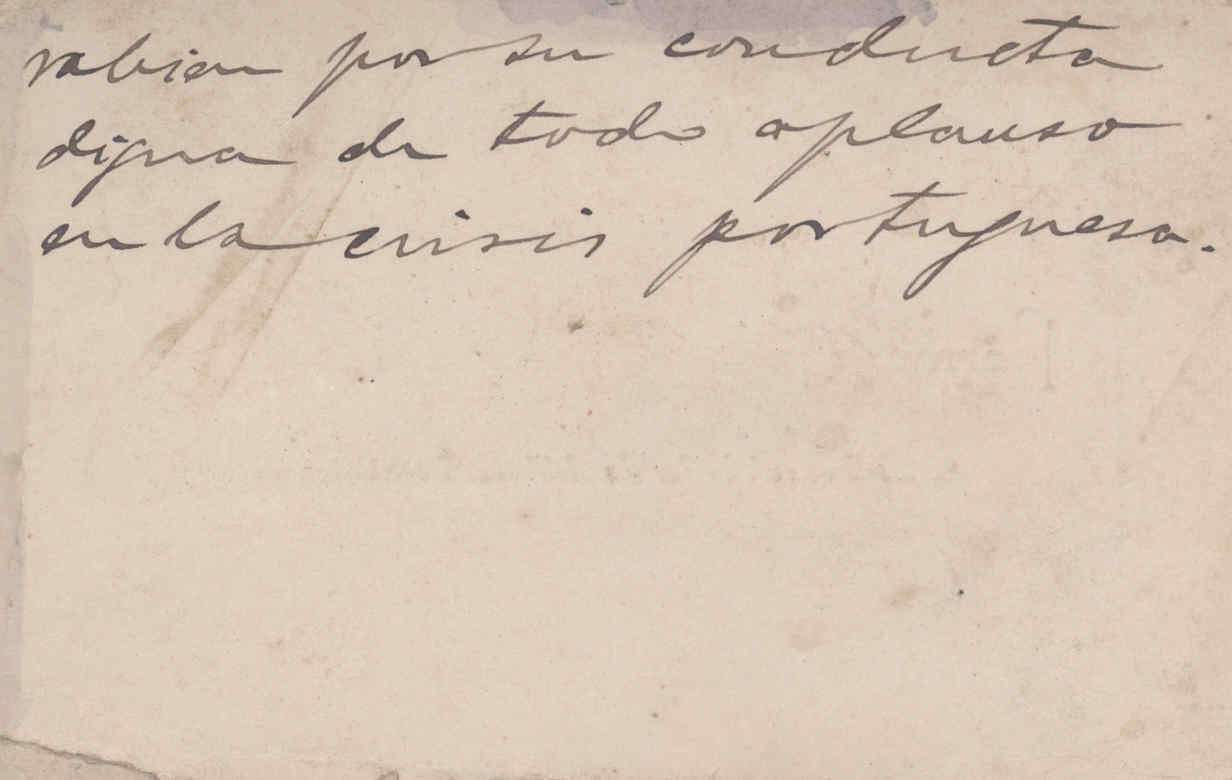 rabien por su conducta
digna de todo aplauso
en la crisis portuguesa.